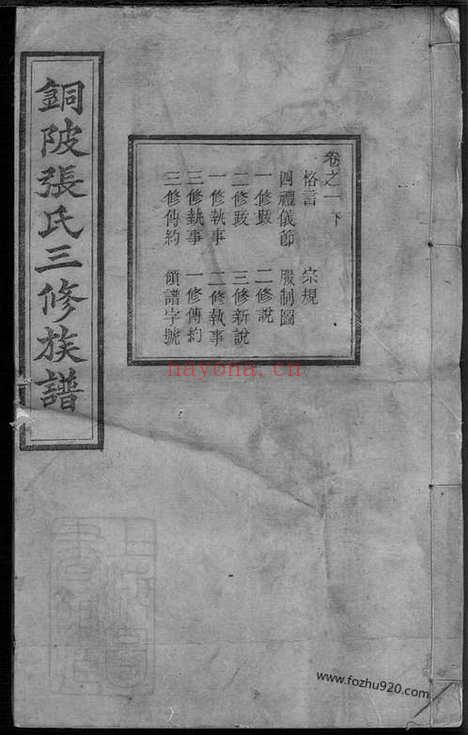 銅陂張氏三修族譜
卷之一下
恪言 宗規
四禮儀節 服制圖
一修跋 二修說
二修跋 三修新說
一修執事 二修執事
三修執事 一修傳約
三修傳約 領譜字號
nayona.cn
www.fozhu920.com